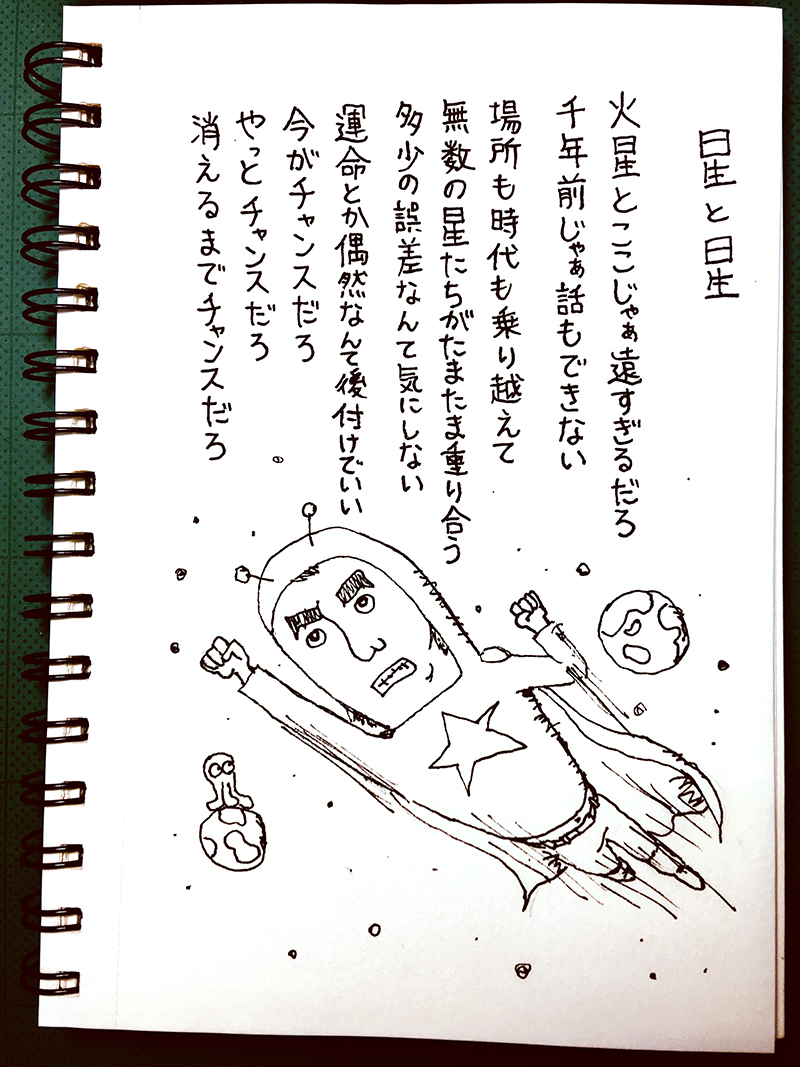 星と星
火星とここじゃぁ遠すぎるだろ
千年前じゃぁ話もできない
場所も時代も乗り越えて
無数の星たちがたまたま重り合う
多少の誤差なんて気にしない
運命とか偶然なんて後付けでいい
今がチャンスだろ
やっとチャンスだろ
消えるまでチャンスだろ